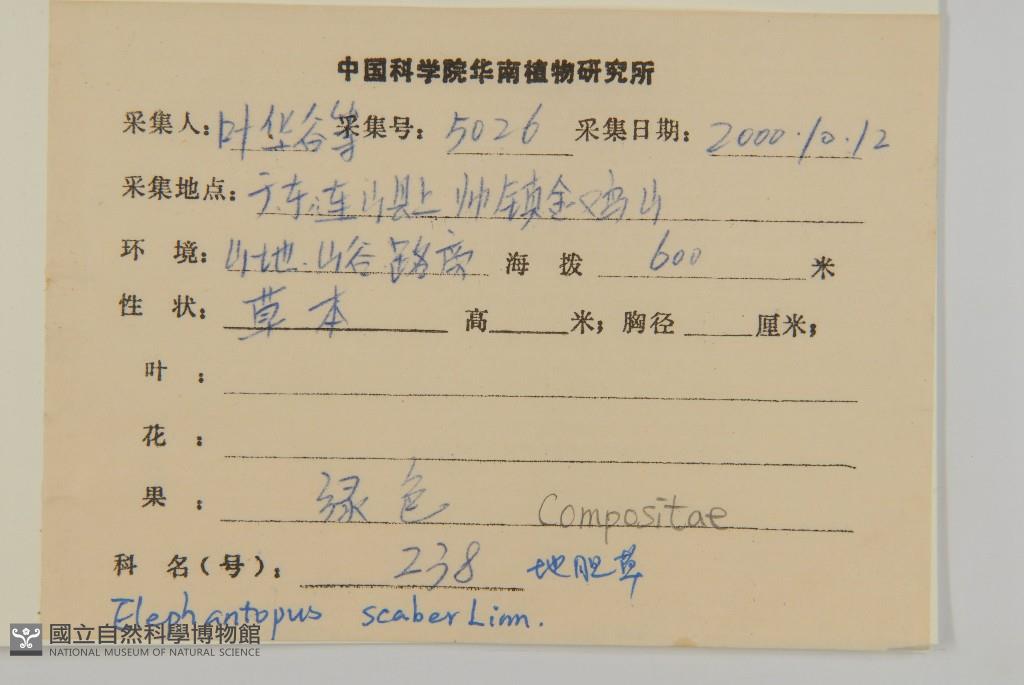 中国科学院华南植物研究所
采集人：叶华谷等 采集号：5026 采集日期：2000.10.12
采集地点：广东连山县上帅镇金鸡山
环 境：山地.山谷路旁 海 拨 600 米
性 状：草本 高 米；胸径 厘米；
叶 ：
花 ：
果 ： 绿色 Compositae
科 名（号）： 238 地胆草
Elephantopus scaber Linn.
國立自然科學博物館
NATIONAL MUSEUM OF NATURAL SCIENCE